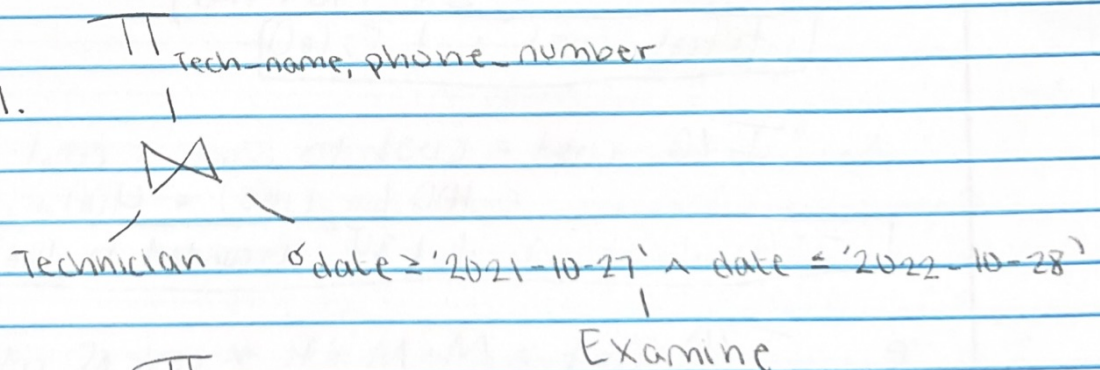 Π Tech_name, phone_number
1.
⋈
Technician σ date ≥ '2021-10-27' ∧ date ≤ '2022-10-28'
Examine
Π